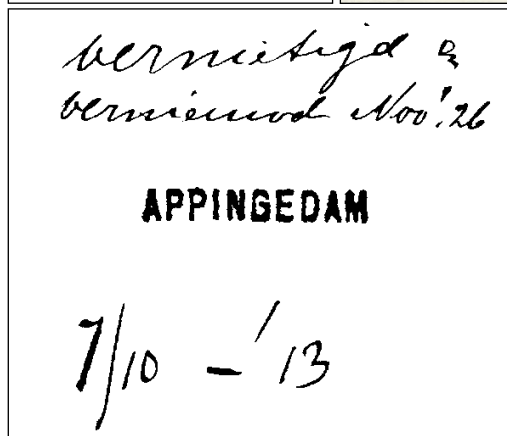 vernietigd &
vernieuwd Nov! 26
APPINGEDAM
7/10 - '13